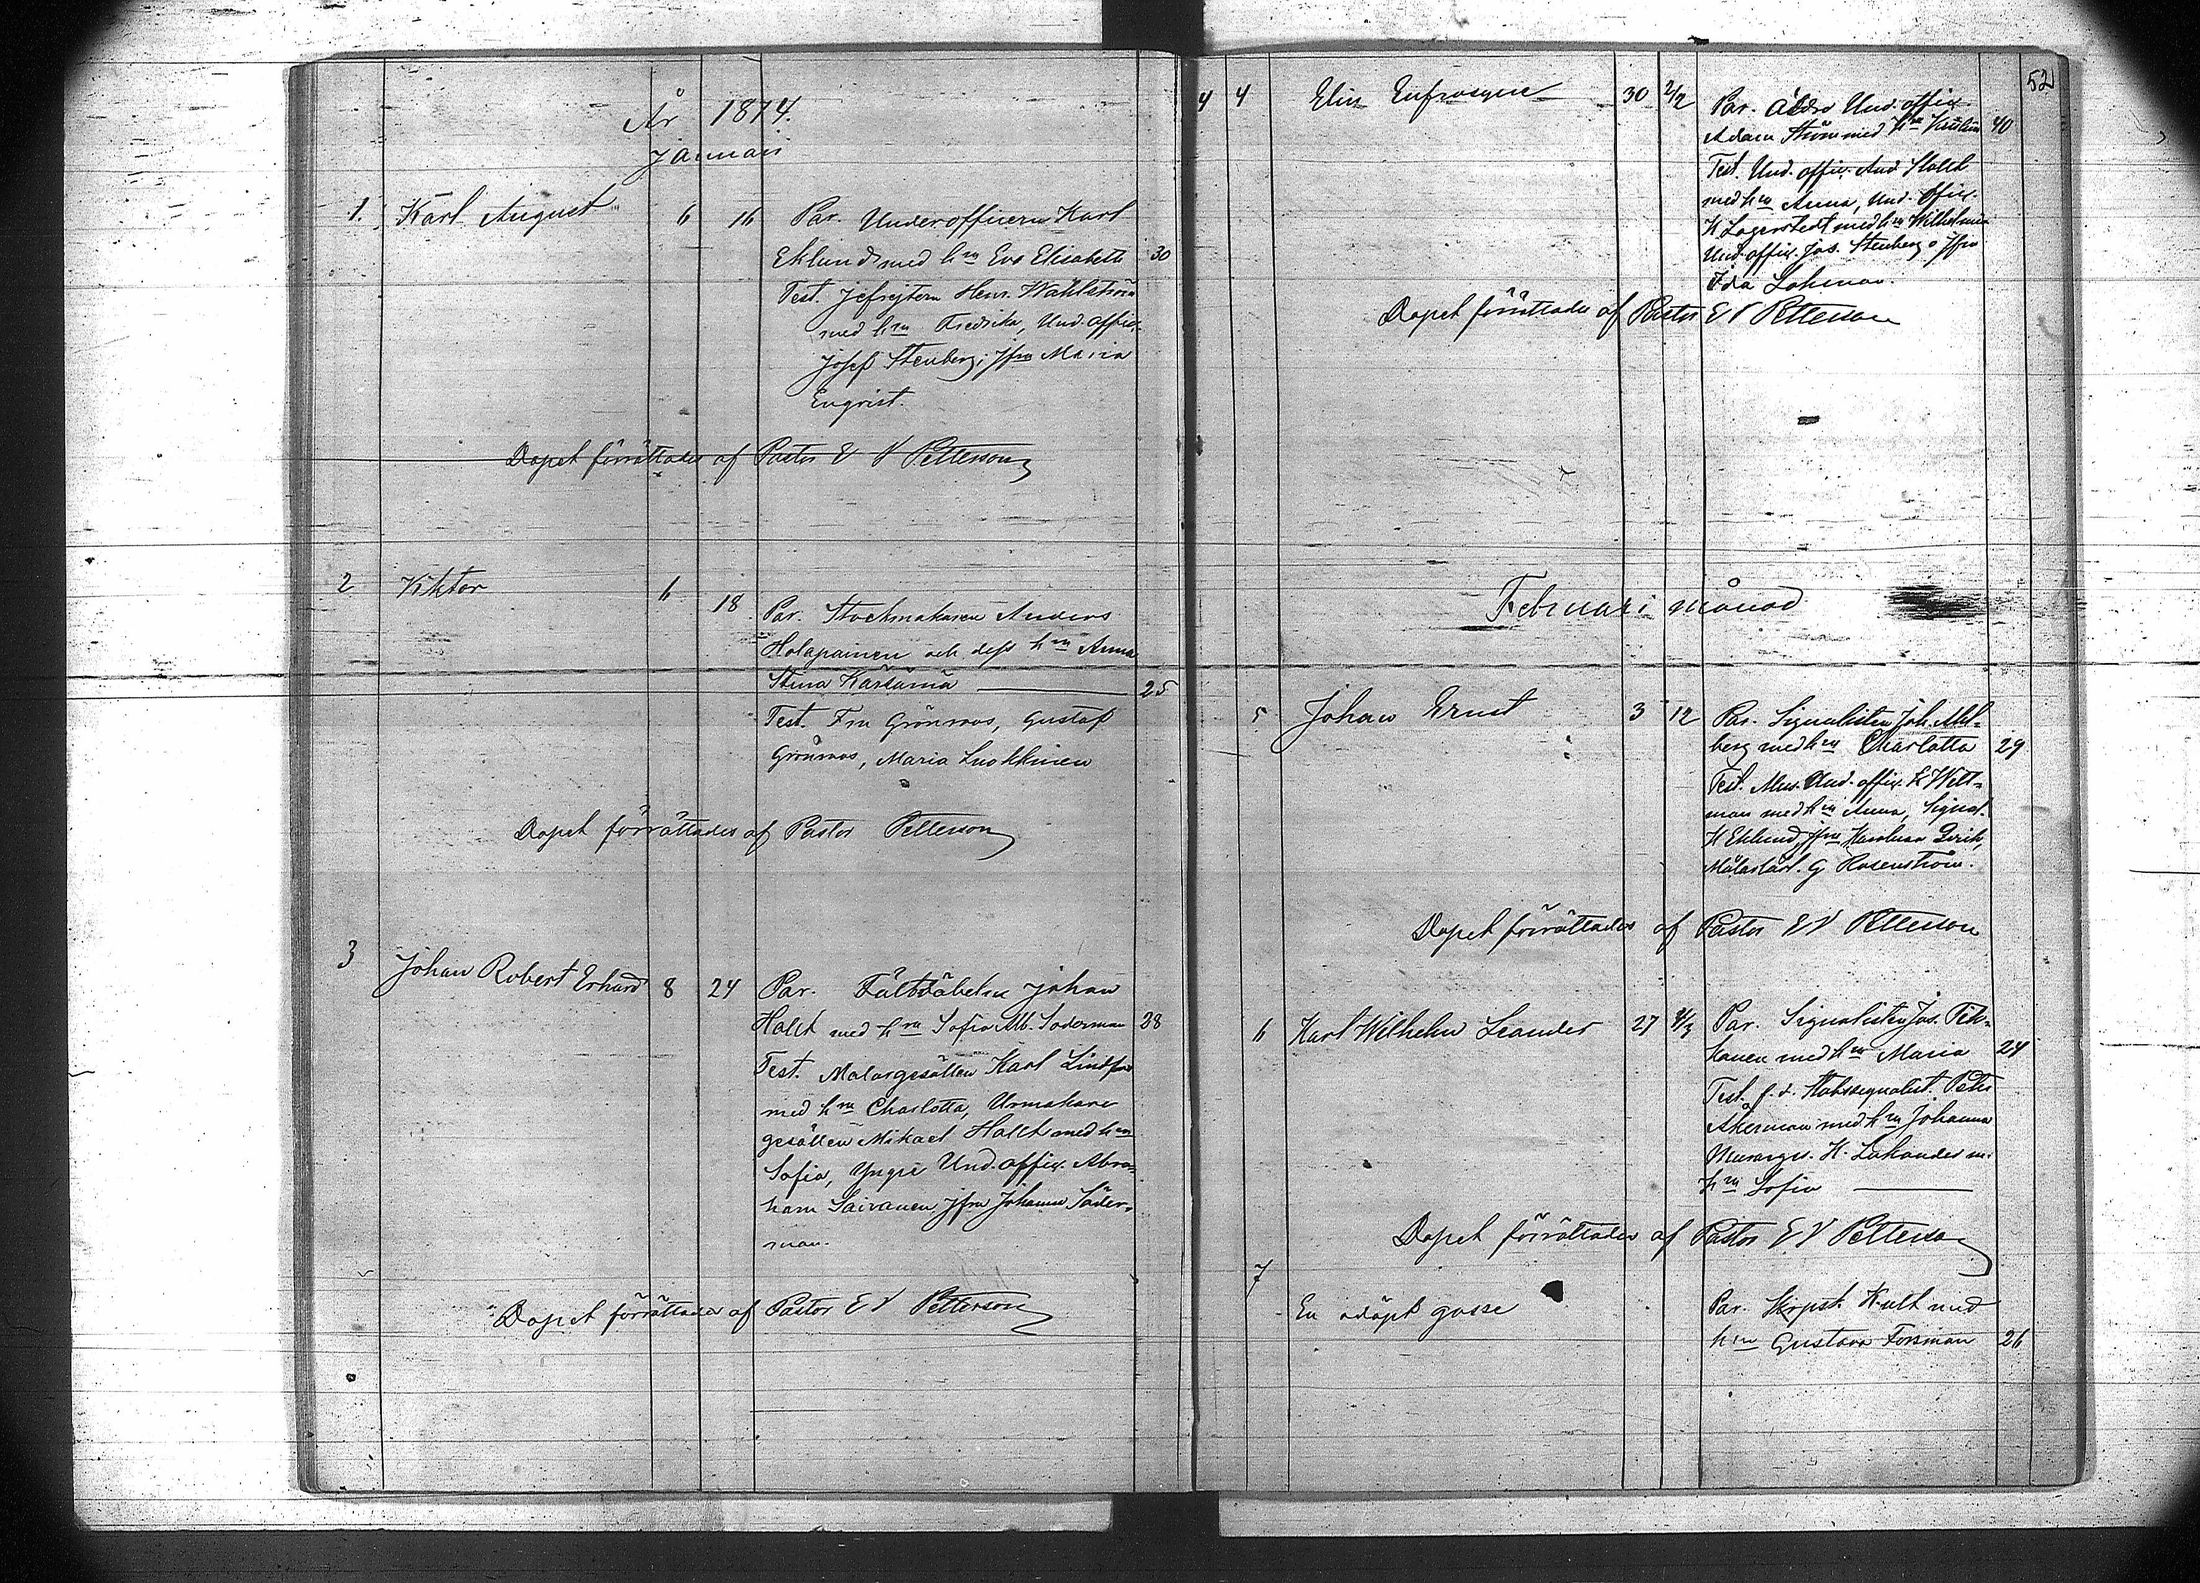 År 1874.
Januari
1. Karl August 6 16 Par. Underofficeren Karl
Eklund med hn Eva Elisabeth 30
Test. Jefrejtern Henr. Wahlström
med hn Fredrika, Und. offic.
Josef Stenberg, Jfru Maria
Enqvist.
Dopet förrättades af Pastor E V Petterson
2 Viktor 6 18 Par. Stockmakaren Anders
Holapainen och dess hn Anna
Stina 25
Test. Fru Grönroos, Gustaf
Grönroos, Maria Luokkinen
Dopet förrättades af Pastor Petterson
3 Johan Robert Erhard 8 24 Par. Fältväbeln Johan
Hallt med hn Sofia Alb. Söderman 38
Test. Målargesällen Karl Lindfors
med hn Charlotta, Urmakare
gesällen Mikael Hallt med hn
Sofia, Yngre Und. offic. Abra-
ham Saivanen, Jfru Johanna Söder-
man.
Dopet förrättades af Pastor E V Petterson
52
4 4 Elin Eufrosyne 30 2/2 Par. Äldre Und. offic.
Adam Ström med hn 40
Test. Und. offic. And
med hn Anna, Und. offic.
K Lagerstedt med hn Wilhelmina
Und. offic. Jos. Stenberg o Jfru
Ida Lohman.
Dopet förrättades af Pastor E V Petterson
Februari månad
5 Johan Ernst 3 12 Par. Signalisten Joh. Ahl-
berg med hn Charlotta 29
Test. Mus. Und. offic. K Welt-
man med hn Anna, Signal.
K Eklund, Jfru Karolina
Målarlärl. G Rosenström.
Dopet förrättades af Pastor E V Petterson
6 Karl Wilhelm Leander 27 4/3 Par. Signalisten Jos. Tik-
kanen med hn Maria 24
Test. f. d. Stabssignalist. Peter
Åkerman med hn Johanna
Murarges. K. Lakander m.
hn Sofia
Dopet förrättades af Pastor E V Petterson
7
En odöpt gosse Par. Skrpst. Kult med
hn Gustava Forsman 26